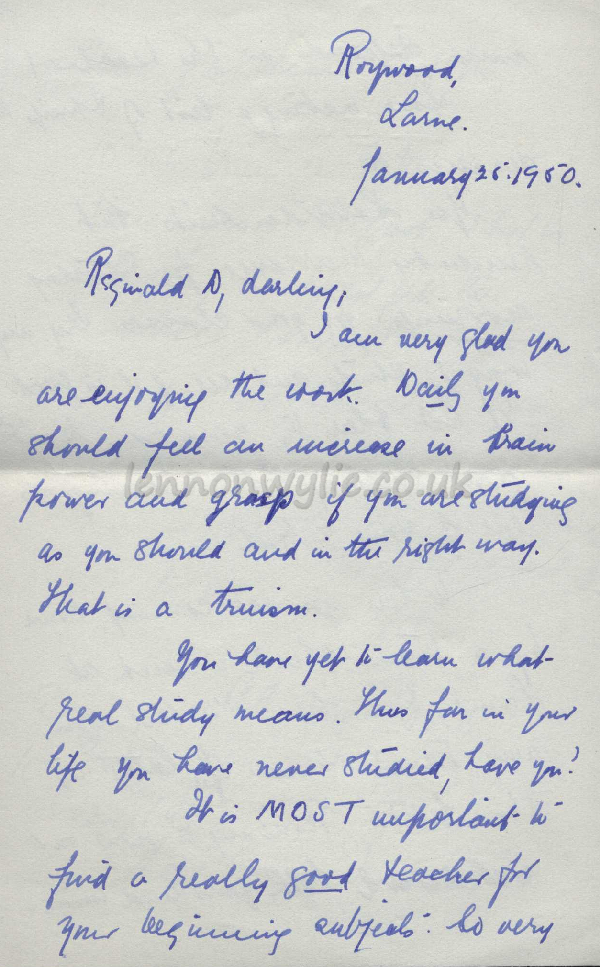 Roywood,
Larne.
January 25. 1950.
Reginald D, darling,
I am very glad you
are enjoying the work. Daily you
should feel an increase in brain
lennonwylie.co.uk
power and grasp if you are studying
as you should and in the right way.
That is a truism.
You have yet to learn what
real study means. Thus far in your
life you have never studied, have you?
It is MOST important to
find a really good teacher for
your beginning subjects. So very